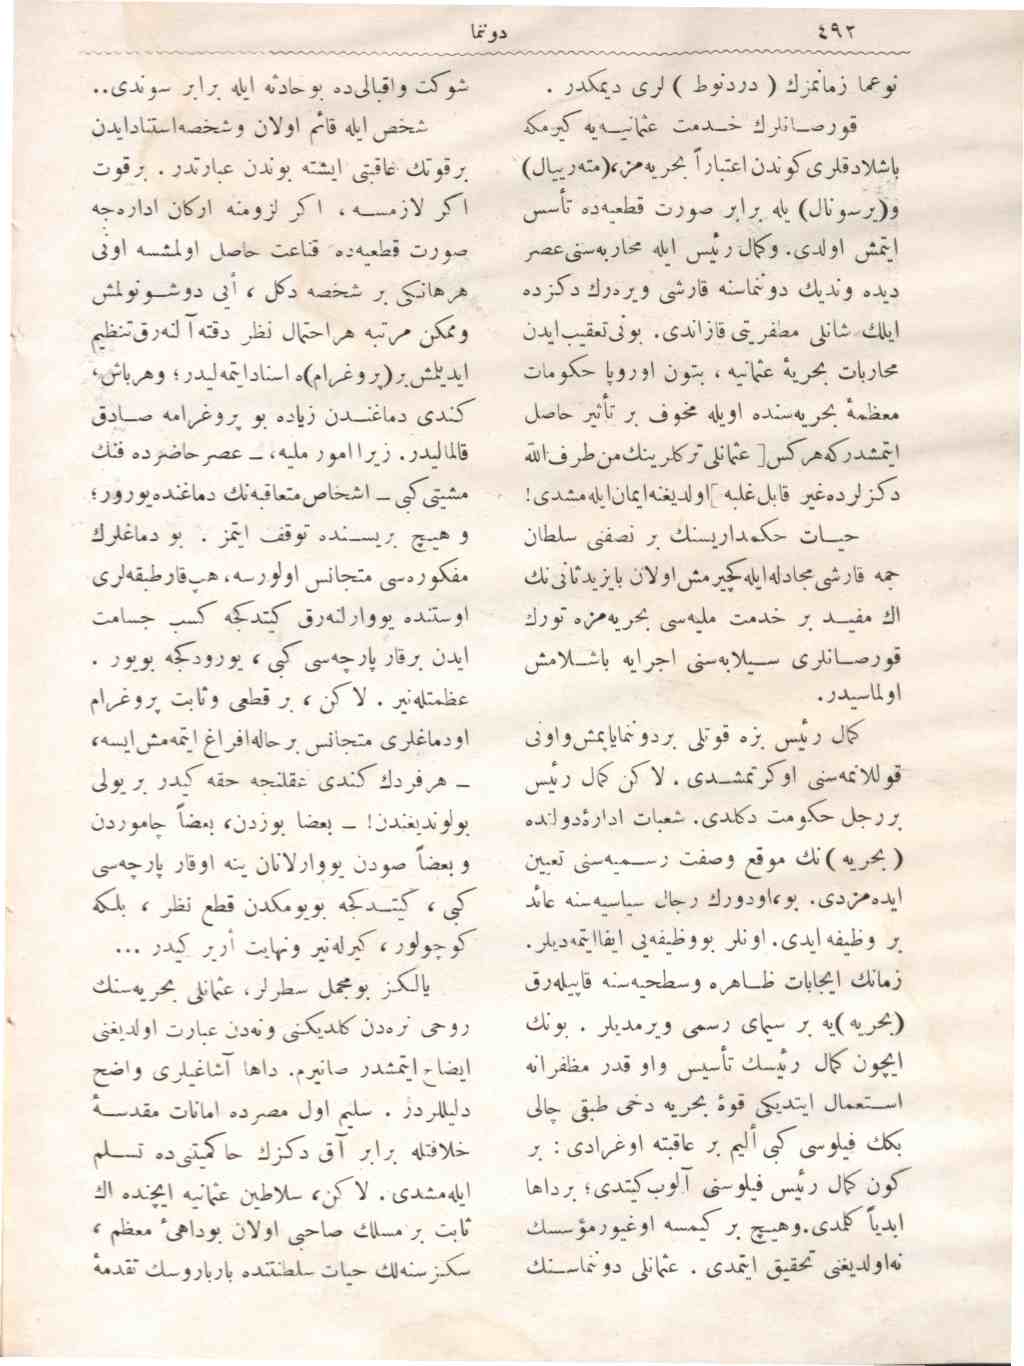 ٤٩٢
دوننما
نوعما زمانمزك ( دردنوط ) لری دیمكدر .
قورصانلرك خدمت عثمانیه‌یه كیرمكه
باشلادقلری كوندن اعتباراً بحریه‌مز،(مته‌رییال)
و(پرسونال) یله برابر صورت قطعیه‌ده تأسس
ایتمش اولدی. وكمال رئیس ایله محاربه‌سنی عصر
دیده وندیك دوننماسنه قارشی ویره‌رك دكزده
ایلك شانلی مظفریتی قازاندی. بونی تعقیب ایدن
محاربات بحریهٔ عثمانیه ، بتون اوروپا حكومات
معظمهٔ بحریه‌سنده اویله مخوف بر تأثیر حاصل
ایتمشدركه هركس [ عثمانلی تركلرینك من طرف الله
دكزلرده غیر قابل غلبه ] اولدیغنه ایمان ایله‌مشدی!
حیات حكمداریسنك بر نصفنی سلطان
جمه قارشی مجادله ایله كچیرمش اولان بایزید ثانی نك
اك مفید بر خدمت ملیه‌سی بحریه‌مزه تورك
قورصانلری سیلابه‌سنی اجرایه باشلامش
اولماسیدر.
كمال رئیس بزه قوتلی بردوننما یاپمش و اونی
قوللانمه‌سنی اوكرتمشدی . لاكن كمال رئیس
بر رجل حكومت دكلدی. شعبات ادارهٔ دولنده
( بحریه ) نك موقع وصفت رسمیه‌سنی تعیین
ایده‌مزدی. بو، اودورك رجال سیاسیه‌سنه عائد
بر وظیفه ایدی. اونلر بو وظیفه‌یی ایفا ایتمه‌دیلر.
زمانك ایجابات ظاهره وسطحیه‌سنه قاپیله‌رق
(بحریه) یه بر سیمای رسمی ویرمدیلر . بونك
ایچون كمال رئیسك تأسیس واو قدر مظفرانه
استعمال ایتدیكی قوهٔ بحریه دخی طبقی چالی
بكك فیلوسی كبی ألیم بر عاقبته اوغرادی : بر
كون كمال رئیس فیلوسنی آلوب كیتدی؛ برداها
ابدیاً كلمدی. وهیچ بر كیمسه اوغیور مؤسسك
نه اولدیغنی تحقیق ایتمدی . عثمانلی دوننماسنك
شوكت واقبالی‌ده بو حادثه ایله برابر سوندی..
شخص ایله قائم اولان وشخصه استناد ایدن
برقوتك عاقبتی ایشته بوندن عبارتدر . برقوت
اكر لازمسه ، اكر لزومنه اركان اداره‌جه
صورت قطعیه‌ده قناعت حاصل اولمشسه اونی
هرهانكی بر شخصه دكل ، أیی دوشونولمش
وممكن مرتبه هر احتمال نظر دقته آلنه‌رق تنظیم
ایدیلمش بر(پروغرام)ه اسناد ایتمه‌لیدر؛ وهرباش،
كندی دماغندن زیاده بو پروغرامه صادق
قالمالیدر. زیرا امور ملیه، ــ عصر حاضرده فنك
مشیتی كبی ــ اشخاص متعاقبه‌نك دماغنده یورور؛
و هیچ بریسنده توقف ایتمز . بو دماغلرك
مفكوره‌سی متجانس اولورسه، هپ قار طبقه‌لری
اوستنده یووارلنه‌رق كیتدكجه كسب جسامت
ایدن برقار پارچه‌سی كبی ، یورودكجه بویور .
عظمتله‌نیر . لاكن ، بر قطعی وثابت پروغرام
اودماغلری متجانس برحاله افراغ ایتمه‌مش ایسه،
ــ هرفردك كندی عقلنجه حقه كیدر بر یولی
بولوندیغندن! ــ بعضا بوزدن، بعضاً چاموردن
وبعضاً صودن یووارلانان ینه اوقار پارچه‌سی
كبی ، كیتدكجه بویومكدن قطع نظر ، بلكه
كوچولور ، كیرله‌نیر ونهایت أریر كیدر ...
یالكز بو مجمل سطرلر، عثمانلی بحریه‌سنك
روحی نره‌دن كلدیكنی ونه‌دن عبارت اولدیغنی
ایضاح ایتمشدر صانیرم. داها آشاغیلری واضح
دلیللردر . سلیم اول مصرده امانات مقدسهٔ
خلافتله برابر آق دكزك حاكمیتنی‌ده تسلم
ایله‌مشدی . لاكن، سلاطین عثمانیه ایچنده اك
ثابت بر مسلك صاحبی اولان بوداهیٔ معظم ،
سكز سنه‌لك حیات سلطنتنده بارباروسك تقدمهٔ